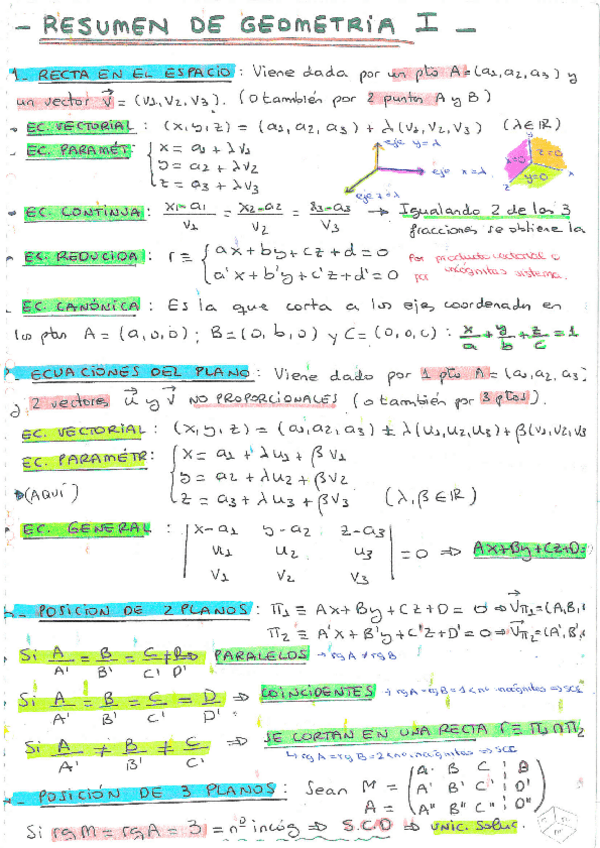 - RESUMEN DE GEOMETRIA I -
1- RECTA EN EL ESPACIO: Viene dada por un pto A=(a1,a2,a3) y
un vector v⃗ = (v1, v2, v3). (o también por 2 puntos A y B)
EC. VECTORIAL: (x,y,z) = (a1, a2, a3) + λ(v1, v2, v3) (λ∈ℝ)
EC. PARAMÉT: { x = a1 + λv1
y = a2 + λv2
z = a3 + λv3
eje y=λ
eje x=λ
eje z=λ
x=0
z=0
y=0
EC. CONTINUA: x1-a1/v1 = x2-a2/v2 = x3-a3/v3 → Igualando 2 de las 3
fracciones se obtiene la
EC. REDUCIDA: r ≡ { ax+by+cz+d=0
a'x+b'y+c'z+d'=0
Por producto vectorial o
por incógnitas sistema.
EC. CANÓNICA: Es la que corta a los ejes coordenados en
los ptos A=(a,0,0); B=(0,b,0) y C=(0,0,c): x/a + y/b + z/c = 1
ECUACIONES DEL PLANO: Viene dado por 1 pto A=(a1,a2,a3)
y 2 vectores u⃗ y v⃗ NO PROPORCIONALES (o también por 3 ptos).
EC. VECTORIAL: (x,y,z) = (a1,a2,a3) + λ(u1,u2,u3) + β(v1,v2,v3
EC. PARAMÉTR: { x = a1 + λu1 + βv1
y = a2 + λu2 + βv2
z = a3 + λu3 + βv3 (λ,β∈ℝ)
(AQUÍ)
EC. GENERAL: | x-a1 y-a2 z-a3 |
| u1 u2 u3 | = 0 ⇒ Ax+By+Cz+D=
| v1 v2 v3 |
POSICION DE 2 PLANOS: π1 ≡ Ax+By+Cz+D=0 ⇒ v⃗π1=(A,B,
π2 ≡ A'x+B'y+C'z+D'=0 ⇒ v⃗π2=(A',B',
Si A/A' = B/B' = C/C' ≠ D/D' ⇒ PARALELOS → rgA≠rgB
Si A/A' = B/B' = C/C' = D/D' ⇒ COINCIDENTES → rgA=rgB=1<nº incógnitas ⇒ SCI
Si A/A' ≠ B/B' ≠ C/C' ⇒ SE CORTAN EN UNA RECTA r ≡ π1∩π2
↳ rgA=rgB=2<nº incógnitas ⇒ SCI
POSICIÓN DE 3 PLANOS: Sean M = ( A B C | D
A = A' B' C' | D'
A'' B'' C'' | D'' )
Si rgM = rgA = 3 = nº incóg ⇒ S.C.D ⇒ UNIC. SOLUC.